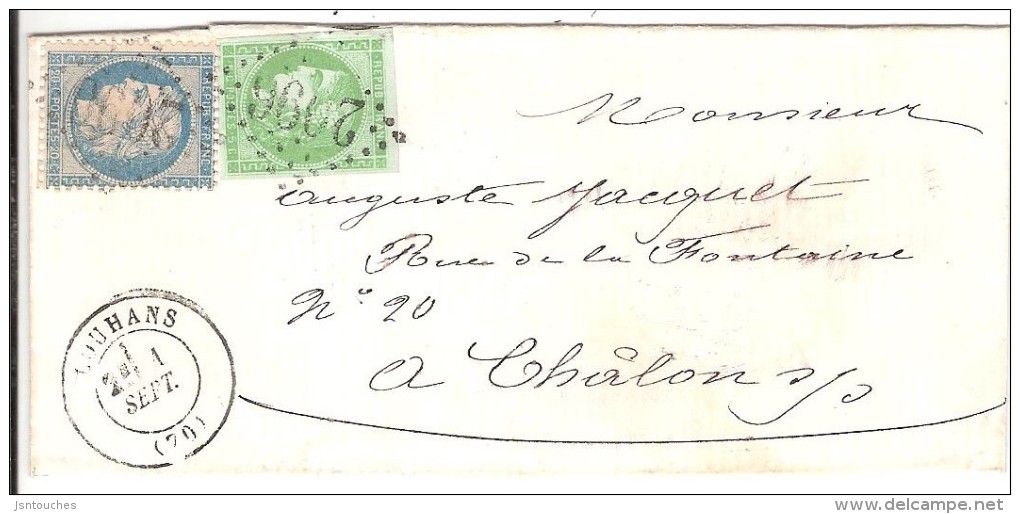 REPUB. FRANC
POSTES
2096
Monsieur
Auguste Jacquet
Rue de la Fontaine
N° 20
A Châlon s/s
LOUHANS
1
SEPT.
(70)
jsntouches
www.delcampe.net